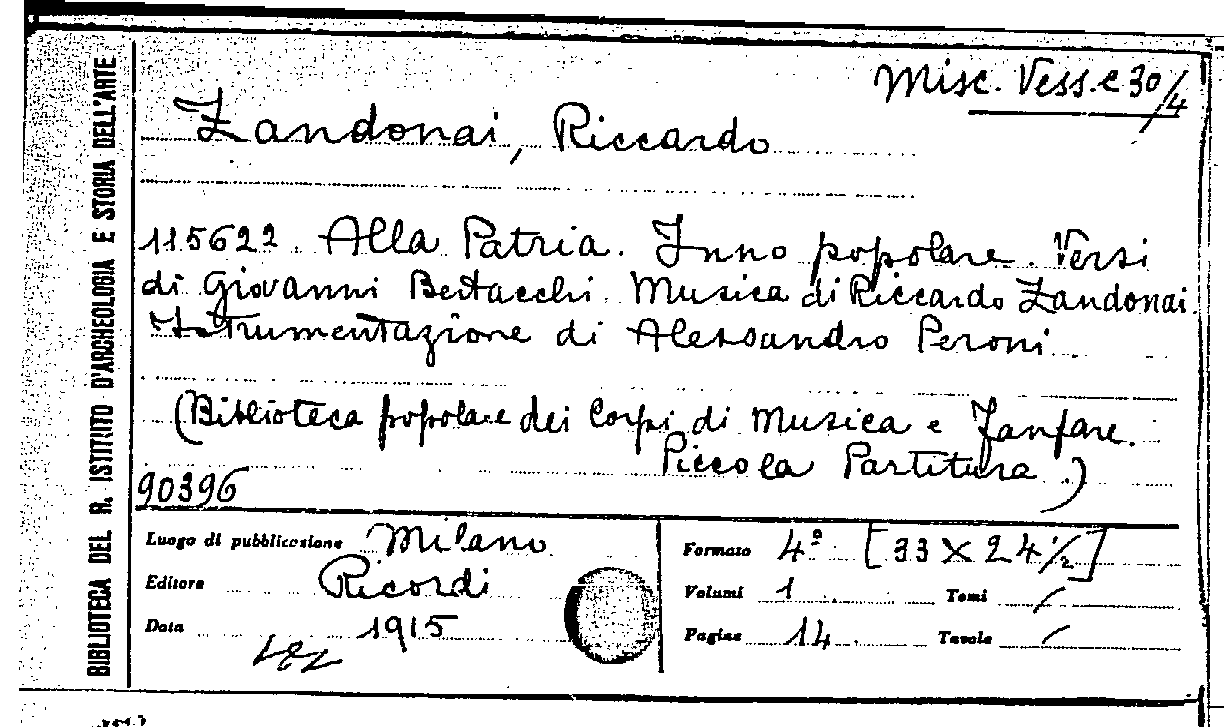 Misc. Vess. C 30/4
BIBLIOTECA DEL R. ISTITUTO D'ARCHEOLOGIA E STORIA DELL'ARTE
Zandonai, Riccardo
115622. Alla Patria. Inno popolare. Versi
di Giovanni Bertacchi. Musica di Riccardo Zandonai.
Istrumentazione di Alessandro Peroni
(Biblioteca popolare dei Corpi di Musica e Fanfare.
Piccola Partitura.)
90396
Luogo di pubblicazione Milano
Editore Ricordi
Data 1915
Formato 4º [33 X 24 1/2]
Volumi 1 Tomi /
Pagine 14. Tavole /